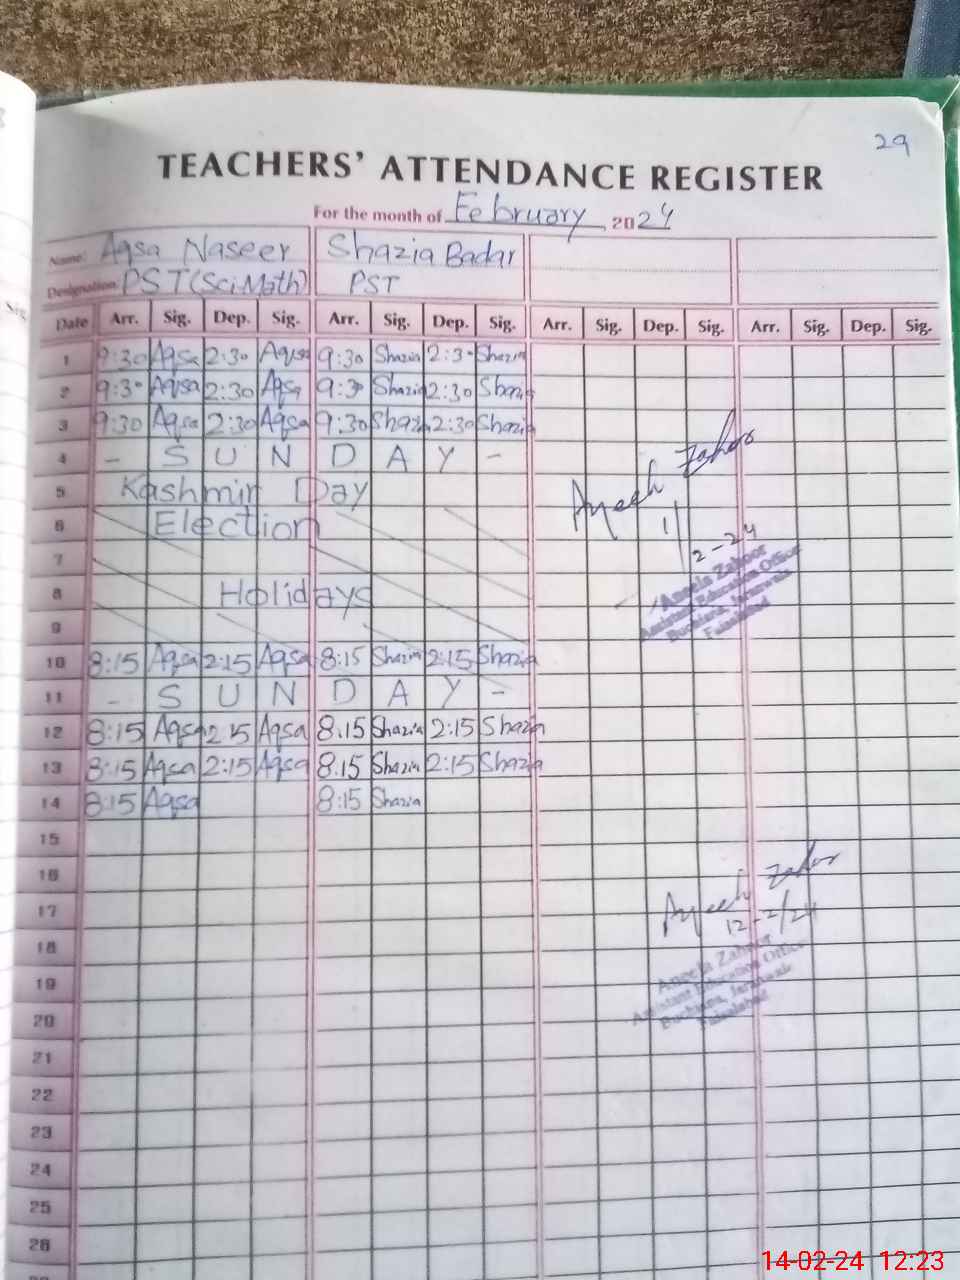 29
TEACHERS' ATTENDANCE REGISTER
For the month of February, 2024
Name: Aqsa Naseer Shazia Badar
Designation: PST (Sci.Math) PST
Date Arr. Sig. Dep. Sig. Arr. Sig. Dep. Sig. Arr. Sig. Dep. Sig. Arr. Sig. Dep. Sig.
1 9:30 Aqsa 2:30 Aqsa 9:30 Shazia 2:30 Shazia
2 9:30 Aqsa 2:30 Aqsa 9:30 Shazia 2:30 Shazia
3 9:30 Aqsa 2:30 Aqsa 9:30 Shazia 2:30 Shazia
4 - S U N D A Y -
5 Kashmir Day
6 Election
7
8 Holidays
9
10 8:15 Aqsa 2:15 Aqsa 8:15 Shazia 2:15 Shazia
11 - S U N D A Y -
12 8:15 Aqsa 2:15 Aqsa 8:15 Shazia 2:15 Shazia
13 8:15 Aqsa 2:15 Aqsa 8:15 Shazia 2:15 Shazia
14 8:15 Aqsa 8:15 Shazia
15
16
17
18
19
20
21
22
23
24
25
26
Zahoor
1/2-24
Aneela Zahoor
Assistant Education Officer
Buchiana, Jaranwala
Faisalabad
Zahoor
12-2/24
Aneela Zahoor
Assistant Education Officer
Buchiana, Jaranwala
Faisalabad
Sig.
14-02-24 12:23